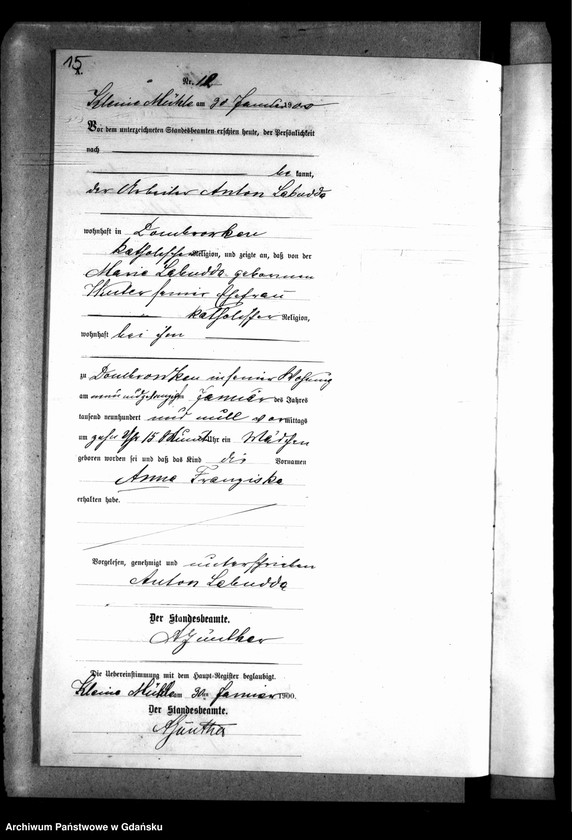 15
A.
Nr. 12
Kleine Mühle am 30 Januar 1900
Vor dem unterzeichneten Standesbeamten erschien heute, der Persönlichkeit
nach
be kannt,
der Arbeiter Anton Labudda
wohnhaft in Dombrowken
katholischer Religion, und zeigte an, daß von der
Maria Labudda geborenen
Winter seiner Ehefrau
katholischer Religion,
wohnhaft bei ihm
zu Dombrowken in seiner Wohnung
am neun und zwanzigsten Januar des Jahres
tausend neunhundert und null vormittags
um zehn Uhr 15 Minut Uhr ein Mädchen
geboren worden sei und daß das Kind die Vornamen
Anna Franziska
erhalten habe.
Vorgelesen, genehmigt und unterschrieben
Anton Labudda
Der Standesbeamte.
Günther
Die Uebereinstimmung mit dem Haupt-Register beglaubigt.
Kleine Mühle am 30ten Januar 1900.
Der Standesbeamte.
Günther
Archiwum Państwowe w Gdańsku